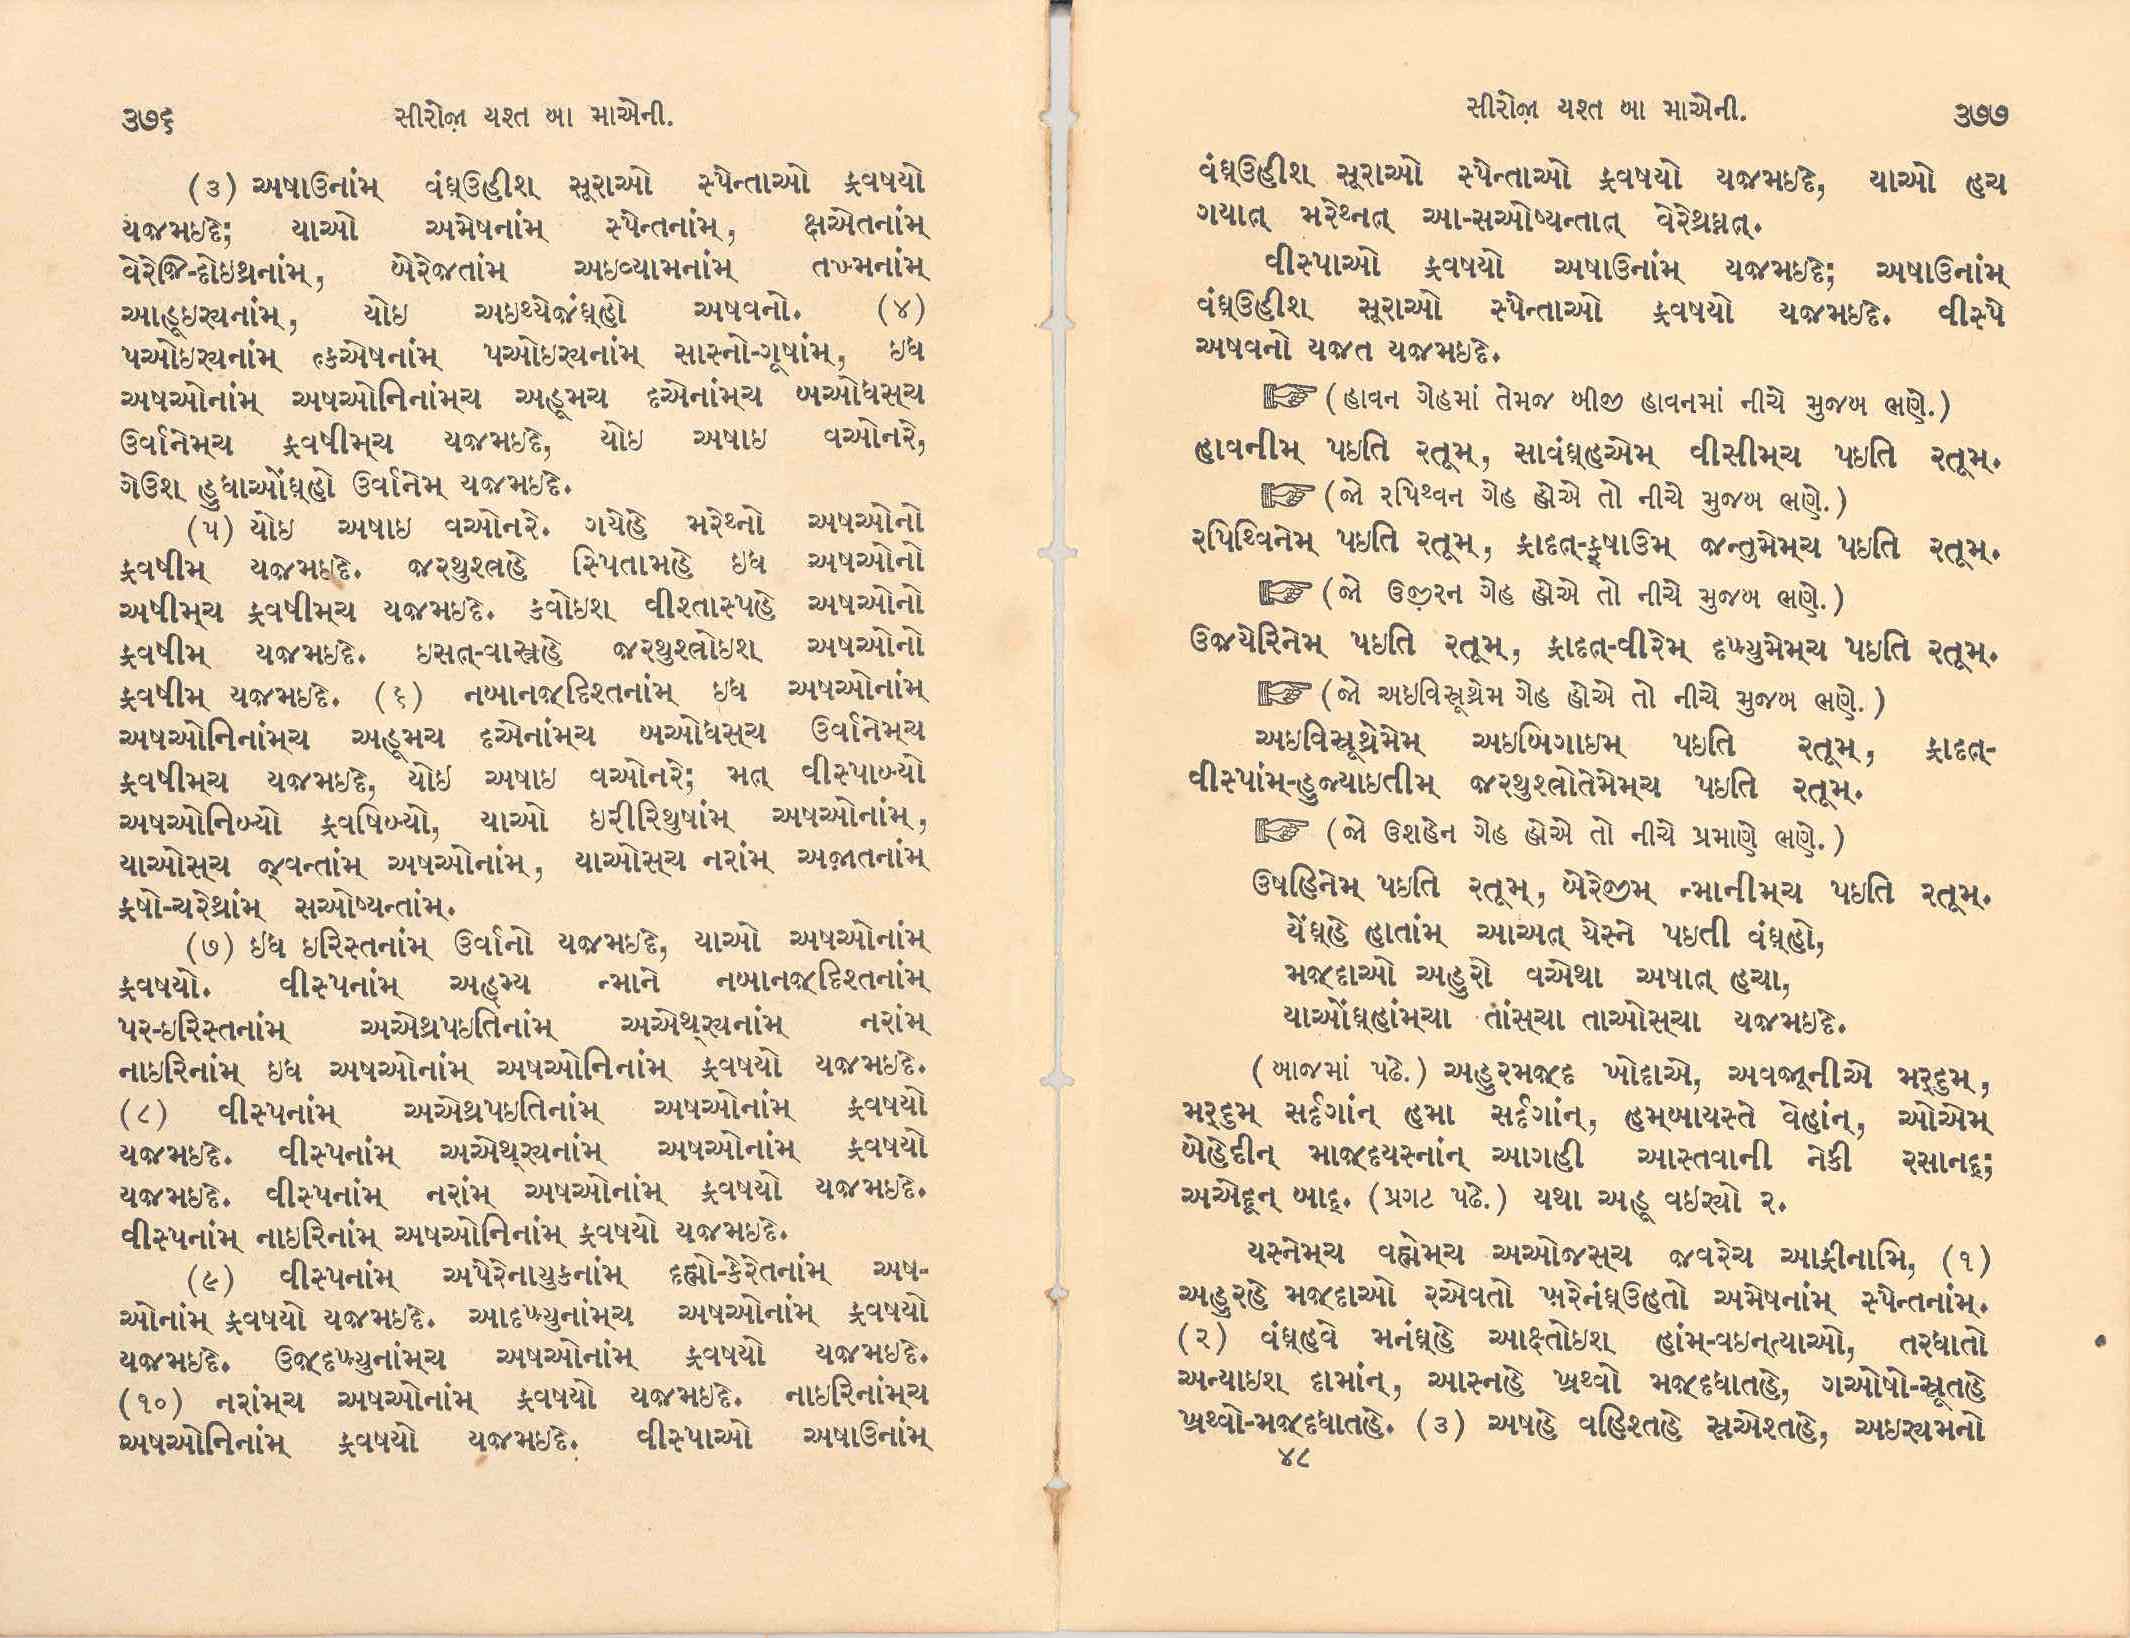 ૩૭૬ સીરોજ઼ા યશ્ત બા માએની.
(૩) અષાઉનાંમ્ વંઘ્ઉહીશ્ સૂરાઓ સ્પેન્તાઓ ફ્રવષયો
યજ઼મઇદે; યાઓ અમેષનાંમ્ સ્પેન્તનાંમ્, ક્ષએતનાંમ્
વેરેજ઼િ-દોઇથ્રનાંમ્, બેરેજ઼તાંમ્ અઇવ્યામનાંમ્ તખ્મનાંમ્
આહૂઇર્યનાંમ્, યોઇ અઇથ્યેજંઘ્હો અષવનો. (૪)
પઓઇર્યનાંમ્ ત્કએષનાંમ્ પઓઇર્યનાંમ્ સાસ્નો-ગૂષાંમ્, ઇધ
અષઓનાંમ્ અષઓનિનાંમ્ચ અહૂમચ દએનાંમ્ચ બઓધસ્ચ
ઉર્વાનેમ્ચ ફ્રવષીમ્ચ યજ઼મઇદે, યોઇ અષાઇ વઓનરે,
ગેઉશ્ હુધાઓંઘ્હો ઉર્વાનેમ્ યજ઼મઇદે.
(૫) યોઇ અષાઇ વઓનરે. ગયેહે મરેથ્નો અષઓનો
ફ્રવષીમ્ યજ઼મઇદે. જ઼રથુશ્ત્રહે સ્પિતામહે ઇધ અષઓનો
અષીમ્ચ ફ્રવષીમ્ચ યજ઼મઇદે. કવોઇશ્ વીશ્તાસ્પહે અષઓનો
ફ્રવષીમ્ યજ઼મઇદે. ઇસત્-વાસ્ત્રહે જ઼રથુશ્ત્રોઇશ્ અષઓનો
ફ્રવષીમ્ યજ઼મઇદે. (૬) નબાનજ઼્દિશ્તનાંમ્ ઇધ અષઓનાંમ્
અષઓનિનાંમ્ચ અહૂમચ દએનાંમ્ચ બઓધસ્ચ ઉર્વાનેમ્ચ
ફ્રવષીમ્ચ યજ઼મઇદે, યોઇ અષાઇ વઓનરે; મત્ વીસ્પાબ્યો
અષઓનિબ્યો ફ્રવષિબ્યો, યાઓ ઇરીરિથુષાંમ્ અષઓનાંમ્,
યાઓસ્ચ જ્વન્તાંમ્ અષઓનાંમ્, યાઓસ્ચ નરાંમ્ અજ઼ાતનાંમ્
ફ્રષો-ચરેથ્રાંમ્ સઓષ્યન્તાંમ્.
(૭) ઇધ ઇરિસ્તનાંમ્ ઉર્વાનો યજ઼મઇદે, યાઓ અષઓનાંમ્
ફ્રવષયો. વીસ્પનાંમ્ અહ્મ્ય ન્માને નબાનજ઼્દિશ્તનાંમ્
પર-ઇરિસ્તનાંમ્ અએથ્રપઇતિનાંમ્ અએથ્ર્યનાંમ્ નરાંમ્
નાઇરિનાંમ્ ઇધ અષઓનાંમ્ અષઓનિનાંમ્ ફ્રવષયો યજ઼મઇદે.
(૮) વીસ્પનાંમ્ અએથ્રપઇતિનાંમ્ અષઓનાંમ્ ફ્રવષયો
યજ઼મઇદે. વીસ્પનાંમ્ અએથ્ર્યનાંમ્ અષઓનાંમ્ ફ્રવષયો
યજ઼મઇદે. વીસ્પનાંમ્ નરાંમ્ અષઓનાંમ્ ફ્રવષયો યજ઼મઇદે.
વીસ્પનાંમ્ નાઇરિનાંમ્ અષઓનિનાંમ્ ફ્રવષયો યજ઼મઇદે.
(૯) વીસ્પનાંમ્ અપેરેનાયુકનાંમ્ દહ્મો-કેરેતનાંમ્ અષ-
ઓનાંમ્ ફ્રવષયો યજ઼મઇદે. આદખ્યુનાંમ્ચ અષઓનાંમ્ ફ્રવષયો
યજ઼મઇદે. ઉજ઼્દખ્યુનાંમ્ચ અષઓનાંમ્ ફ્રવષયો યજ઼મઇદે.
(૧૦) નરાંમ્ચ અષઓનાંમ્ ફ્રવષયો યજ઼મઇદે. નાઇરિનાંમ્ચ
અષઓનિનાંમ્ ફ્રવષયો યજ઼મઇદે. વીસ્પાઓ અષાઉનાંમ્
સીરોજ઼ા યશ્ત બા માએની. ૩૭૭
વંઘ્ઉહીશ્ સૂરાઓ સ્પેન્તાઓ ફ્રવષયો યજ઼મઇદે, યાઓ હચ
ગયાત્ મરેથ્નત્ આ-સઓષ્યન્તાત્ વેરેથ્રઘ્નત્.
વીસ્પાઓ ફ્રવષયો અષાઉનાંમ્ યજ઼મઇદે; અષાઉનાંમ્
વંઘ્ઉહીશ્ સૂરાઓ સ્પેન્તાઓ ફ્રવષયો યજ઼મઇદે. વીસ્પે
અષવનો યજ઼ત યજ઼મઇદે.
(હાવન ગેહમાં તેમજ બીજી હાવનમાં નીચે મુજબ ભણે.)
હાવનીમ્ પઇતિ રતૂમ્, સાવંઘ્હએમ્ વીસીમ્ચ પઇતિ રતૂમ્.
(જો રપિથ્વન ગેહ હોએ તો નીચે મુજબ ભણે.)
રપિથ્વિનેમ્ પઇતિ રતૂમ્, ફ્રાદત્-ફ્ષાઉમ્ જ઼ન્તુમેમ્ચ પઇતિ રતૂમ્.
(જો ઉજ઼ીરન ગેહ હોએ તો નીચે મુજબ ભણે.)
ઉજ઼યેરિનેમ્ પઇતિ રતૂમ્, ફ્રાદત્-વીરેમ્ દખ્યુમેમ્ચ પઇતિ રતૂમ્.
(જો અઇવિસ્રૂથ્રેમ ગેહ હોએ તો નીચે મુજબ ભણે.)
અઇવિસ્રૂથ્રેમેમ્ અઇબિગાઇમ્ પઇતિ રતૂમ્, ફ્રાદત્-
વીસ્પાંમ્-હુજ્યાઇતીમ્ જ઼રથુશ્ત્રોતેમેમ્ચ પઇતિ રતૂમ્.
(જો ઉશહેન ગેહ હોએ તો નીચે પ્રમાણે ભણે.)
ઉષહિનેમ્ પઇતિ રતૂમ્, બેરેજીમ્ ન્માનીમ્ચ પઇતિ રતૂમ્.
યેંઘ્હે હાતાંમ્ આઅત્ યેસ્ને પઇતી વંઘ્હો,
મજ઼્દાઓ અહુરો વએથા અષાત્ હચા,
યાઓંઘ્હાંમ્ચા તાંસ્ચા તાઓસ્ચા યજ઼મઇદે.
(બાજમાં પઢે.) અહુરમજ઼્દ ખોદાએ, અવજ઼ૂનીએ મર્દુમ્,
મર્દુમ્ સર્દગાંન્ હમા સર્દગાંન્, હમ્બાયસ્તે વેહાંન્, ઓએમ્
બેહેદીન્ માજ઼્દયસ્નાંન્ આગાહી આસ્તવાની નેકી રસાનદ્;
અએદૂન્ બાદ્. (પ્રગટ પઢે.) યથા અહૂ વઇર્યો ૨.
યસ્નેમ્ચ વહ્મેમ્ચ અઓજસ્ચ જ઼વરેચ આફ્રીનામિ, (૧)
અહુરહે મજ઼્દાઓ રએવતો ખ઼રેનંઘ્ઉહતો અમેષનાંમ્ સ્પેન્તનાંમ્.
(૨) વંઘ્હવે મનંઘ્હે આક્ષ્તોઇશ્ હાંમ્-વઇન્ત્યાઓ, તરધાતો
અન્યાઇશ્ દામાંન્, આસ્નહે ખ્રથ્વો મજ઼્દધાતહે, ગઓષો-સ્રૂતહે
ખ્રથ્વો-મજ઼્દધાતહે. (૩) અષહે વહિશ્તહે સ્રએશ્તહે, અઇર્યમનો
૪૮